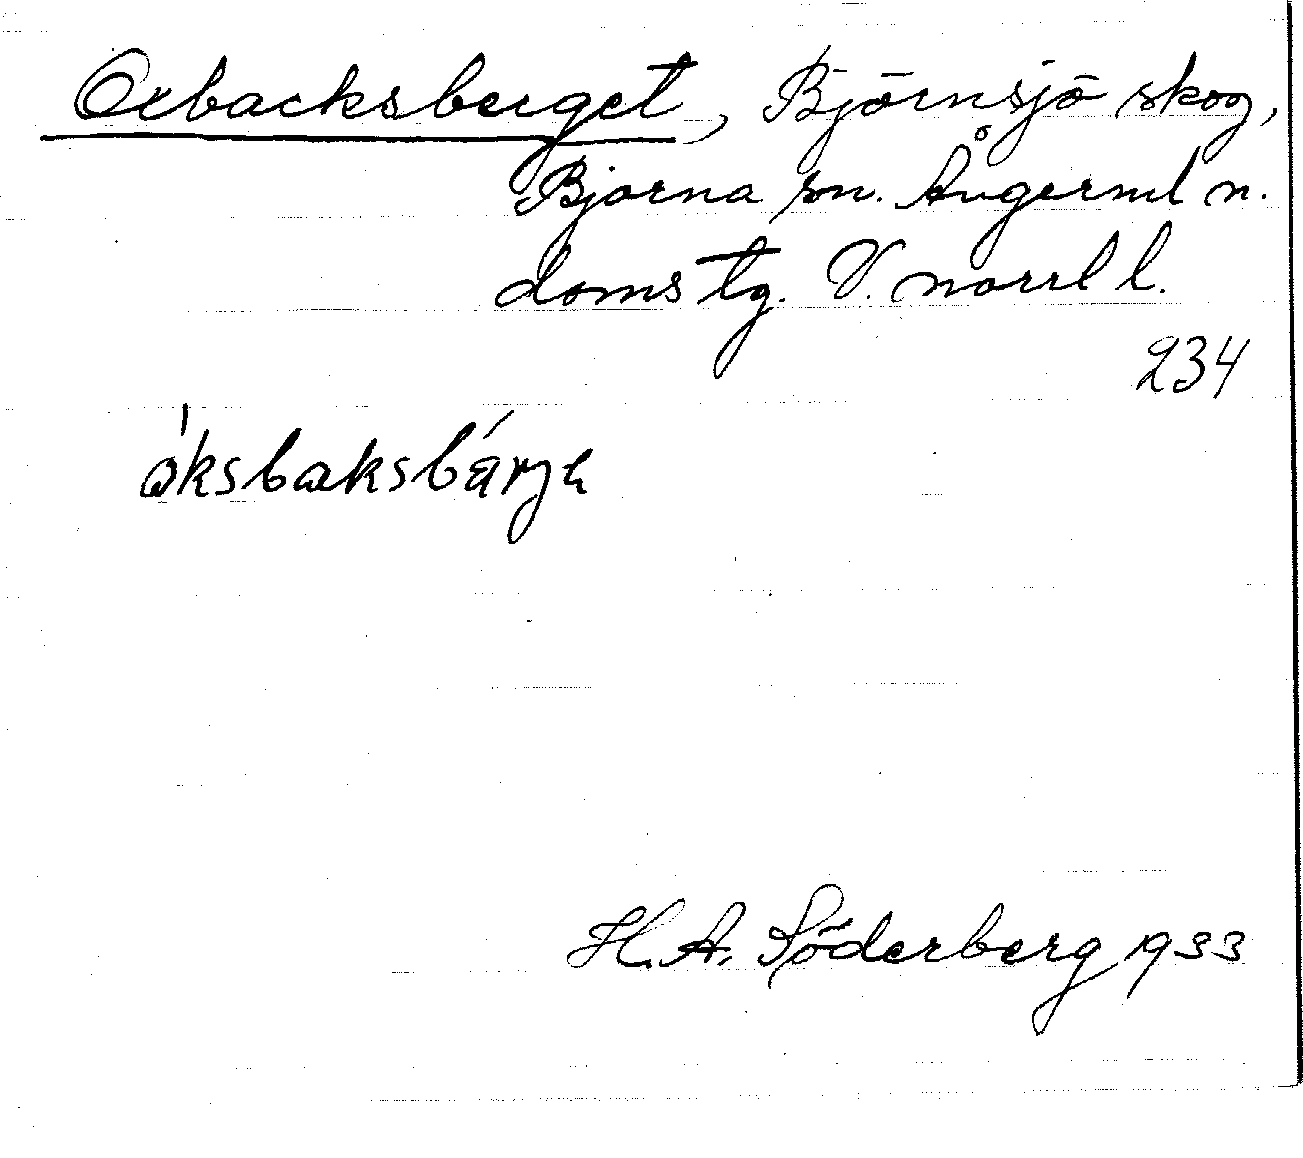 Oxbacksberget, Björnsjö skog,
Bjorna sn. Ångerml n.
doms tg. V. norrl l.
234
åksbaksbárjə
H. A. Söderberg 1933